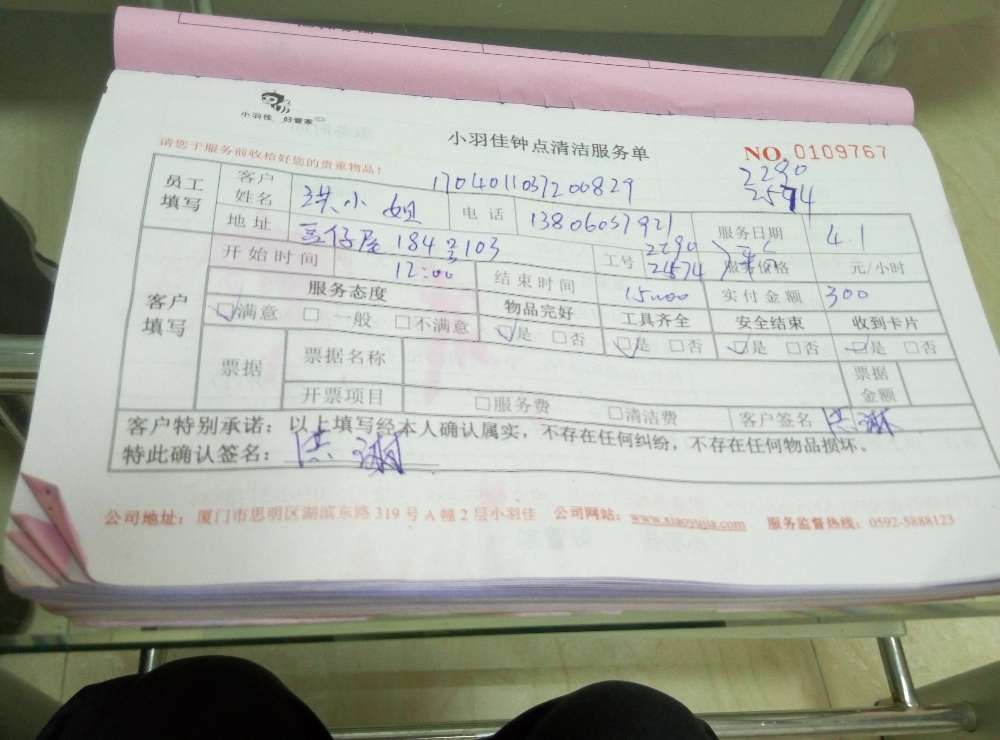 小羽佳 好管家
小羽佳钟点清洁服务单
NO. 0109767
请您于服务前收检好您的贵重物品!
1704011037200829
2290
2574
员工填写 客户姓名 洪小姐 电话 13806057921 服务日期 4.1
地址 184号103 工号 2290 2574 服务价格 元/小时
客户填写 开始时间 12:00 结束时间 15:00 实付金额 300
服务态度 物品完好 工具齐全 安全结束 收到卡片
☑满意 □一般 □不满意 ☑是 □否 ☑是 □否 ☑是 □否 ☑是 □否
票据 票据名称 票据金额
开票项目 □服务费 □清洁费 客户签名 洪
客户特别承诺:以上填写经本人确认属实,不存在任何纠纷,不存在任何物品损坏。
特此确认签名: 洪
公司地址:厦门市思明区湖滨东路319号A幢2层小羽佳 公司网站:www.xiaoyujia.com 服务监督热线:0592-5888123